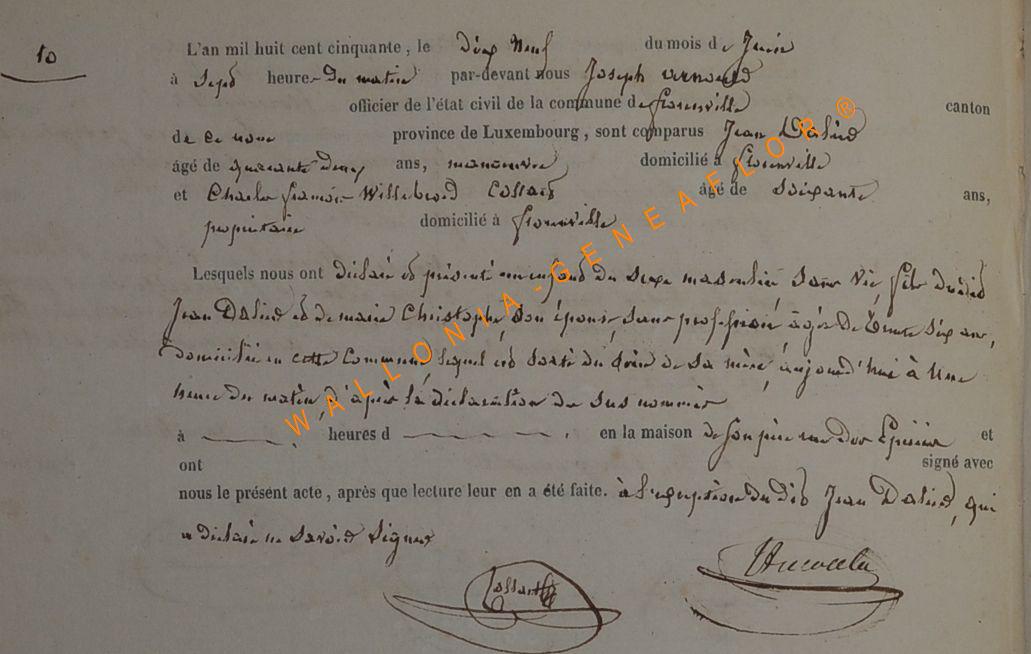 10
L'an mil huit cent cinquante, le dix neuf du mois de Juin
à Sept heures du matin par-devant nous Joseph
officier de l'état civil de la commune de florenville canton
de ce nom province de Luxembourg, sont comparus Jean Dalied
âgé de quarante deux ans, manoeuvre domicilié à florenville
et Charles françois Willebrord Collard âgé de Soixante ans,
propriétaire domicilié à florenville
Lesquels nous ont déclaré et présenté un enfant du Sexe masculin, Sans Vie, fils dudit
Jean Dalied et de marie Christophe, Son épouse, Sans profession, âgée de trente Six ans,
domiciliée en cette Commune, lequel est Sorti du Sein de Sa mère, aujourd'hui à Une
heure du matin, d'après la déclaration des Sus nommés
à heures d en la maison de Son père rue des Epiciers et
ont signé avec
nous le présent acte, après que lecture leur en a été faite. à l'exception du dit Jean Dalied, qui
a déclaré ne Savoir Signer
WALLONIA-GENEAFLOR ®